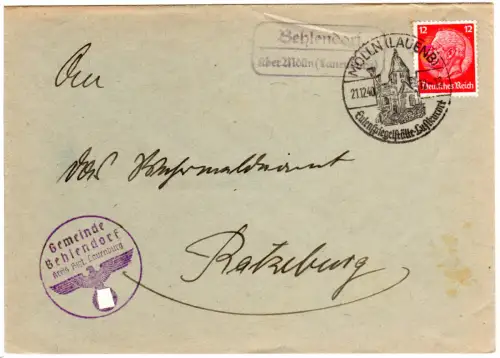 Behlendorf
über Mölln (Lauenb.)
12 12
Deutsches Reich
MÖLLN (LAUENB)
21.12.40
Eulenspiegelstätte-Luftkurort
An
das Wehrmeldeamt
Ratzeburg
Gemeinde
Behlendorf
Kreis Hzt. Lauenburg